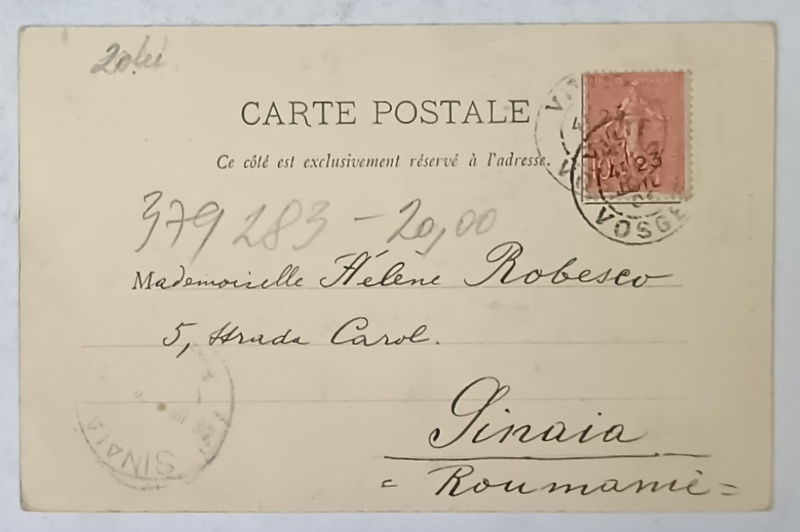 20 lei
CARTE POSTALE
Ce côté est exclusivement réservé à l'adresse.
379283 - 20,00
Mademoiselle Hélène Robesco
5, Strada Carol.
Sinaia
= Roumanie =
VOSGES
23
SINAIA